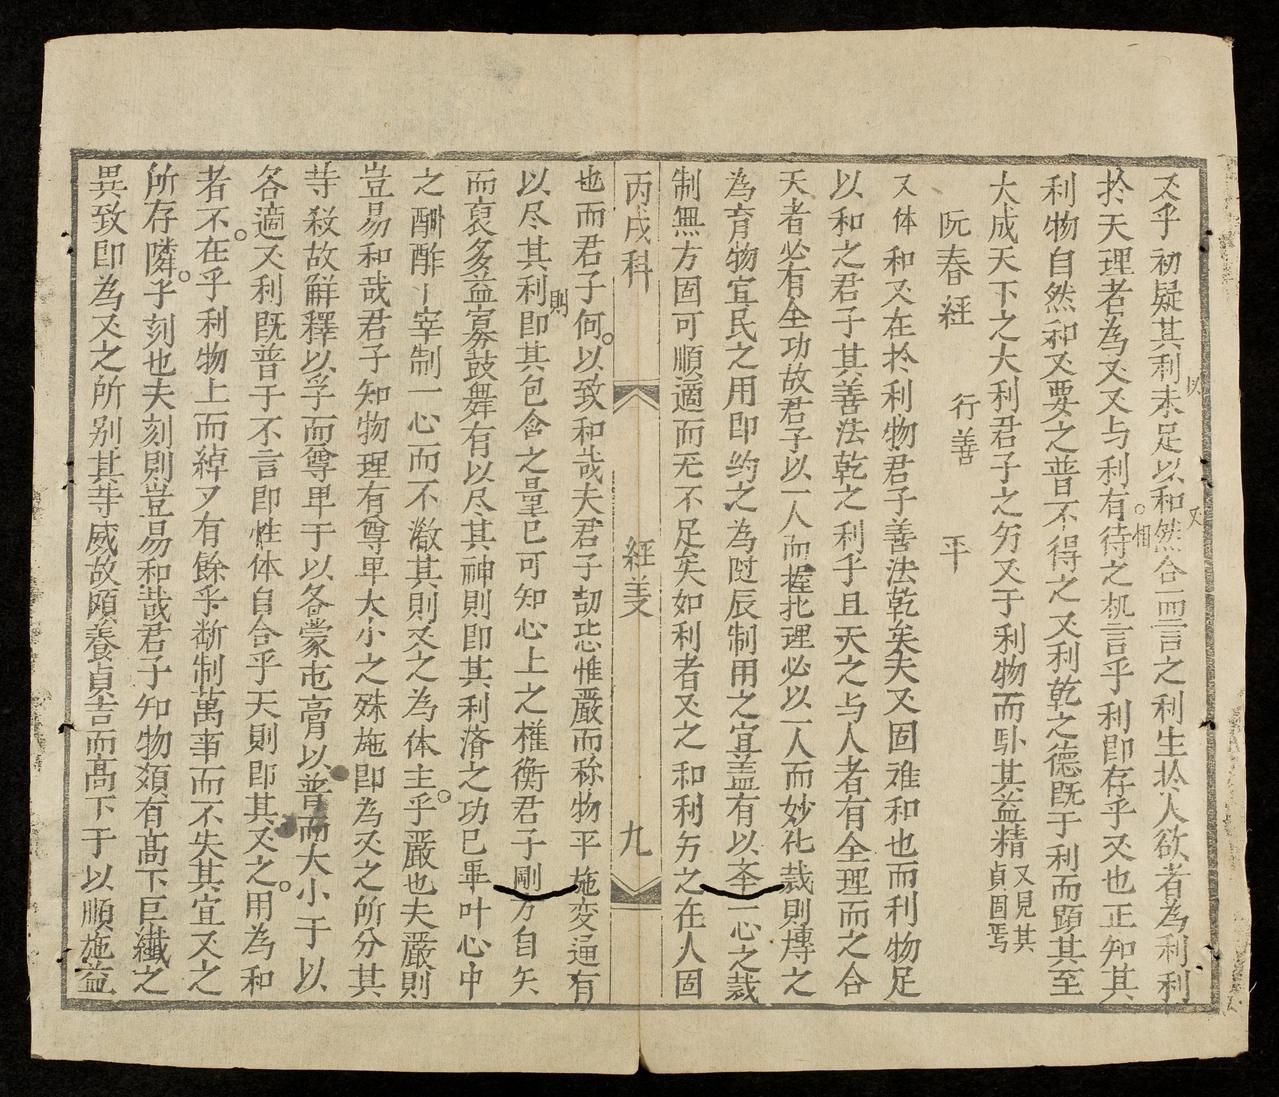 爻乎初疑其利未足以和然合而言之利生於人欲者為利利
於天理者為又又与利有待之机言乎利即存乎又也正知其
利物自然和又要之普不得之又利乾之德既于利而顕其至
大成天下之大利君子之方又于利物而卧其益精又見其貞固焉
阮春經 行善 平
又体和又在於利物君子善法乾矣夫又固难和也而利物足
以和之君子其善法乾之利乎且天之与人者有全理而之合
天者必有全功故君子以一人而握北理必以一人而妙化裁則塼之
為育物宜民之用即约之為辰制用之宜盖有以一心之裁
制無方固可順適而无不足矣如利者爻之和利方之在人固
丙戌科 經義 九
也而君子何以致和哉夫君子韧恐惟嚴而称物平施变通有
以尽其利則即其包含之量已可知心上之權衡君子剛方自矢
而裒多益寡鼓舞有以尽其神則即其利濟之功已畢叶心中
之酬酢宰制一心而不激其則爻之為体主乎嚴也夫嚴則
豈易和哉君子知物理有尊卑大小之殊施即為爻之所分其
等殺故觧釋以孚而尊卑于以各蒙屯膏以普而大小于以
各適爻利既普于不言即性体自合乎天則即其爻之用為和
者不在乎利物上而綽又有餘乎断制萬事而不失其宜爻之
所存隣乎刻也夫刻則豈易和哉君子知物類有高下巨纖之
異致即為爻之所別其等威故頤養貞吉而高下于以順施益
以
又
相